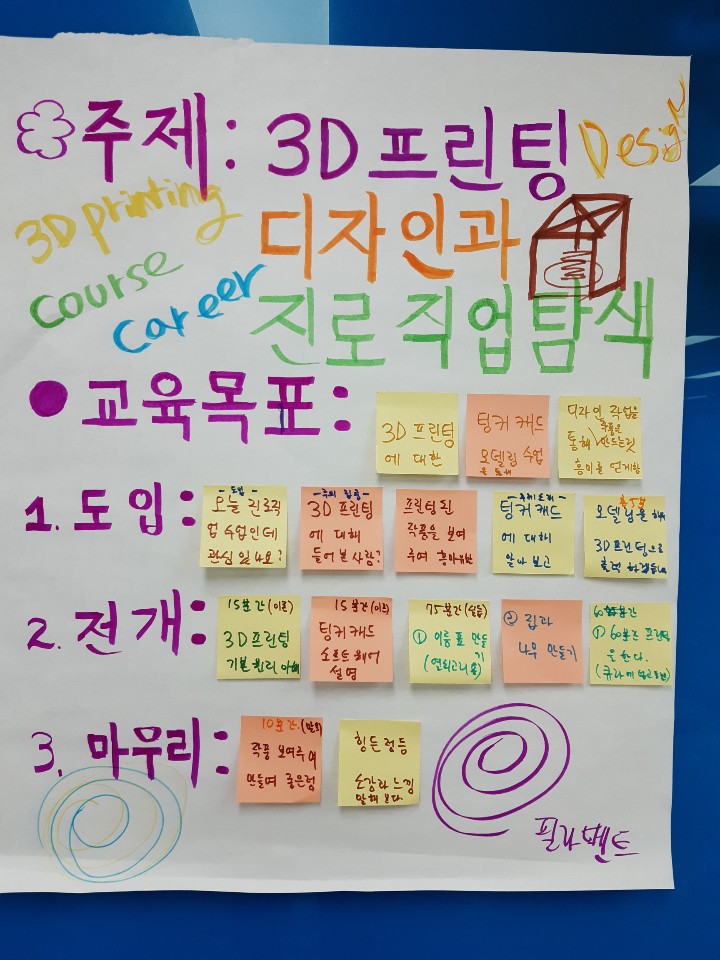 주제: 3D프린팅
Design
3D printing
디자인과
course
career
진로직업탐색
교육목표:
3D 프린팅
에 대한
팅커 캐드
모델링 수업
을 통해
디자인 작업을
통해 작품을 만드는것
흥미를
1. 도입:
-도입-
오늘 진로직
업 수업인데
관심 있나요?
-주의 집중-
3D 프린팅
에 대해
들어 본 사람?
프린팅 된
작품을 보여
주며 흥미유발
팅커 캐드
에 대해
알아 보고
총 5분
모델링을 해서
3D 프린팅으로
출력
2. 전개:
15분간 (이론)
3D 프린팅
기본 원리 이해
15분간 (이론)
팅커 캐드
소프트웨어
설명
75분간 (실습)
① 이름표 만들
기
(열쇠고리 용)
② 집과
나무 만들기
60분간
① 60분간 프린팅
을 한다.
3. 마무리:
10분간.
작품 보여주며
만들며 좋은점
힘든 점등
소감과 느낌
말해 본다
필라멘트